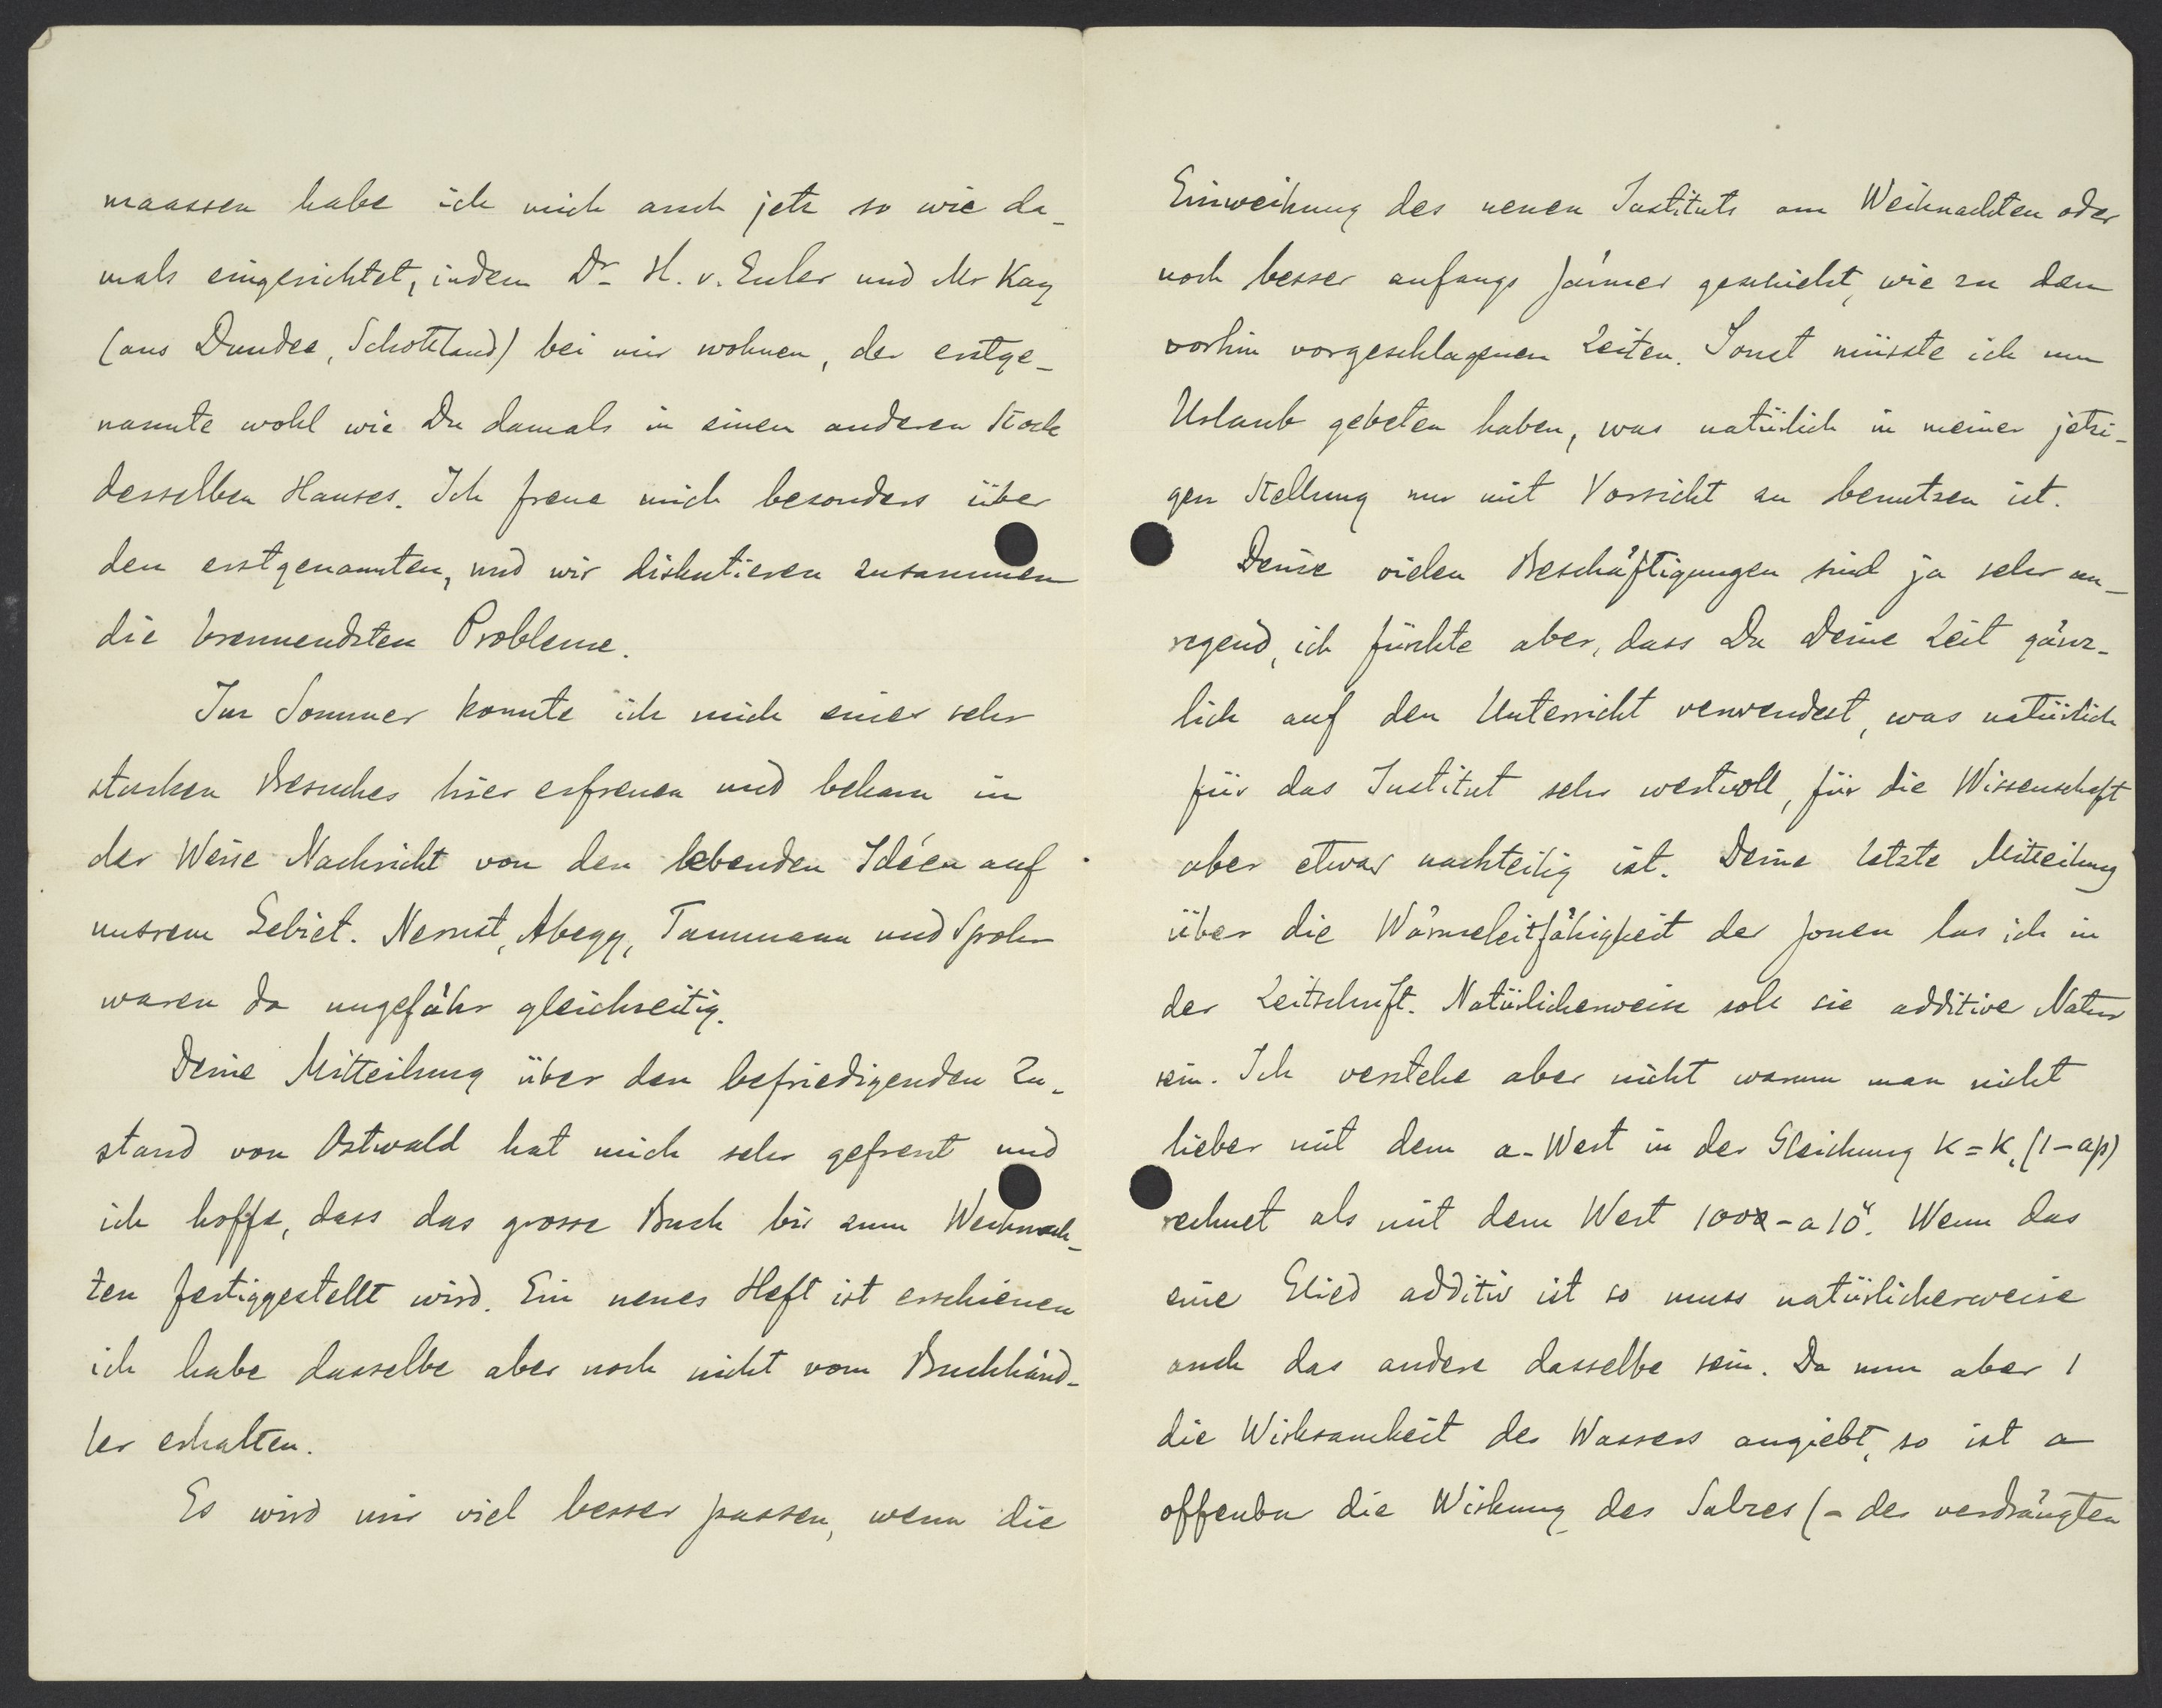 maassen habe ich mich auch jetz so wie da-
mals eingerichtet, indem Dr. H. v. Euler und Mr Kay
(aus Dundee, Schottland) bei mir wohnen, der erstge-
nannte wohl wie Du damals in einen anderen Stock
desselben Hauses. Ich freue mich besonders über
den erstgenannten, und wir diskutieren zusammen
die brennendsten Probleme.
Im Sommer konnte ich mich einer sehr
starken Besuches hier erfreuen und bekam in
der Weise Nachricht von den lebenden Idéen auf
unsrem Gebiet. Nernst, Abegg, Tammann und Spohr
waren da ungefähr gleichzeitig.
Deine Mitteilung über den befriedigenden Zu-
stand von Ostwald hat mich sehr gefreut und
ich hoffe, dass das grosse Buch bis zum Weihnach-
ten fertiggestellt wird. Ein neues Heft ist erschienen
ich habe dasselbe aber noch nicht vom Buchhänd-
ler erhalten.
Es wird mir viel besser passen, wenn die
Einweihung des neuen Instituts um Weihnachten oder
noch besser anfangs Jänner geschieht, wie zu den
vorhin vorgeschlagenen Zeiten. Sonst müsste ich um
Urlaub gebeten haben, was natürlich in meiner jetzi-
gen Stellung nur mit Vorsicht zu benutzen ist.
Deine vielen Beschäftigungen sind ja sehr an-
regend, ich fürchte aber, dass Du Deine Zeit gänz-
lich auf den Unterricht verwendest, was natürlich
für das Institut sehr wertvoll, für die Wissenschaft
aber etwas nachteilig ist. Deine letzte Mitteilung
über die Wärmeleitfähigkeit der Jonen las ich in
der Zeitschrift. Natürlicherweise soll sie additiver Natur
sein. Ich verstehe aber nicht warum man nicht
lieber mit dem a-Wert in der Gleichung K = K, (1-ap)
rechnet als mit dem Wert Wenn das
eine Glied additiv ist so muss natürlicherweise
auch das andere dasselbe sein. Da nun aber 1
die Wirksamkeit des Wassers angiebt, so ist a
offenbar die Wirkung des Salzes (- des verdrängten